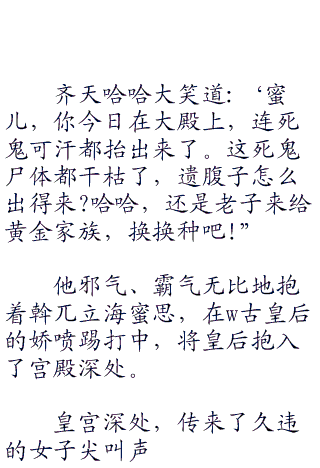 齐天哈哈大笑道：‘蜜
儿，你今日在大殿上，连死
鬼可汗都抬出来了。这死鬼
尸体都干枯了，遗腹子怎么
出得来?哈哈，还是老子来给
黄金家族，换换种吧!”
他邪气、霸气无比地抱
着斡兀立海蜜思，在w古皇后
的娇喷踢打中，将皇后抱入
了宫殿深处。
皇宫深处，传来了久违
的女子尖叫声